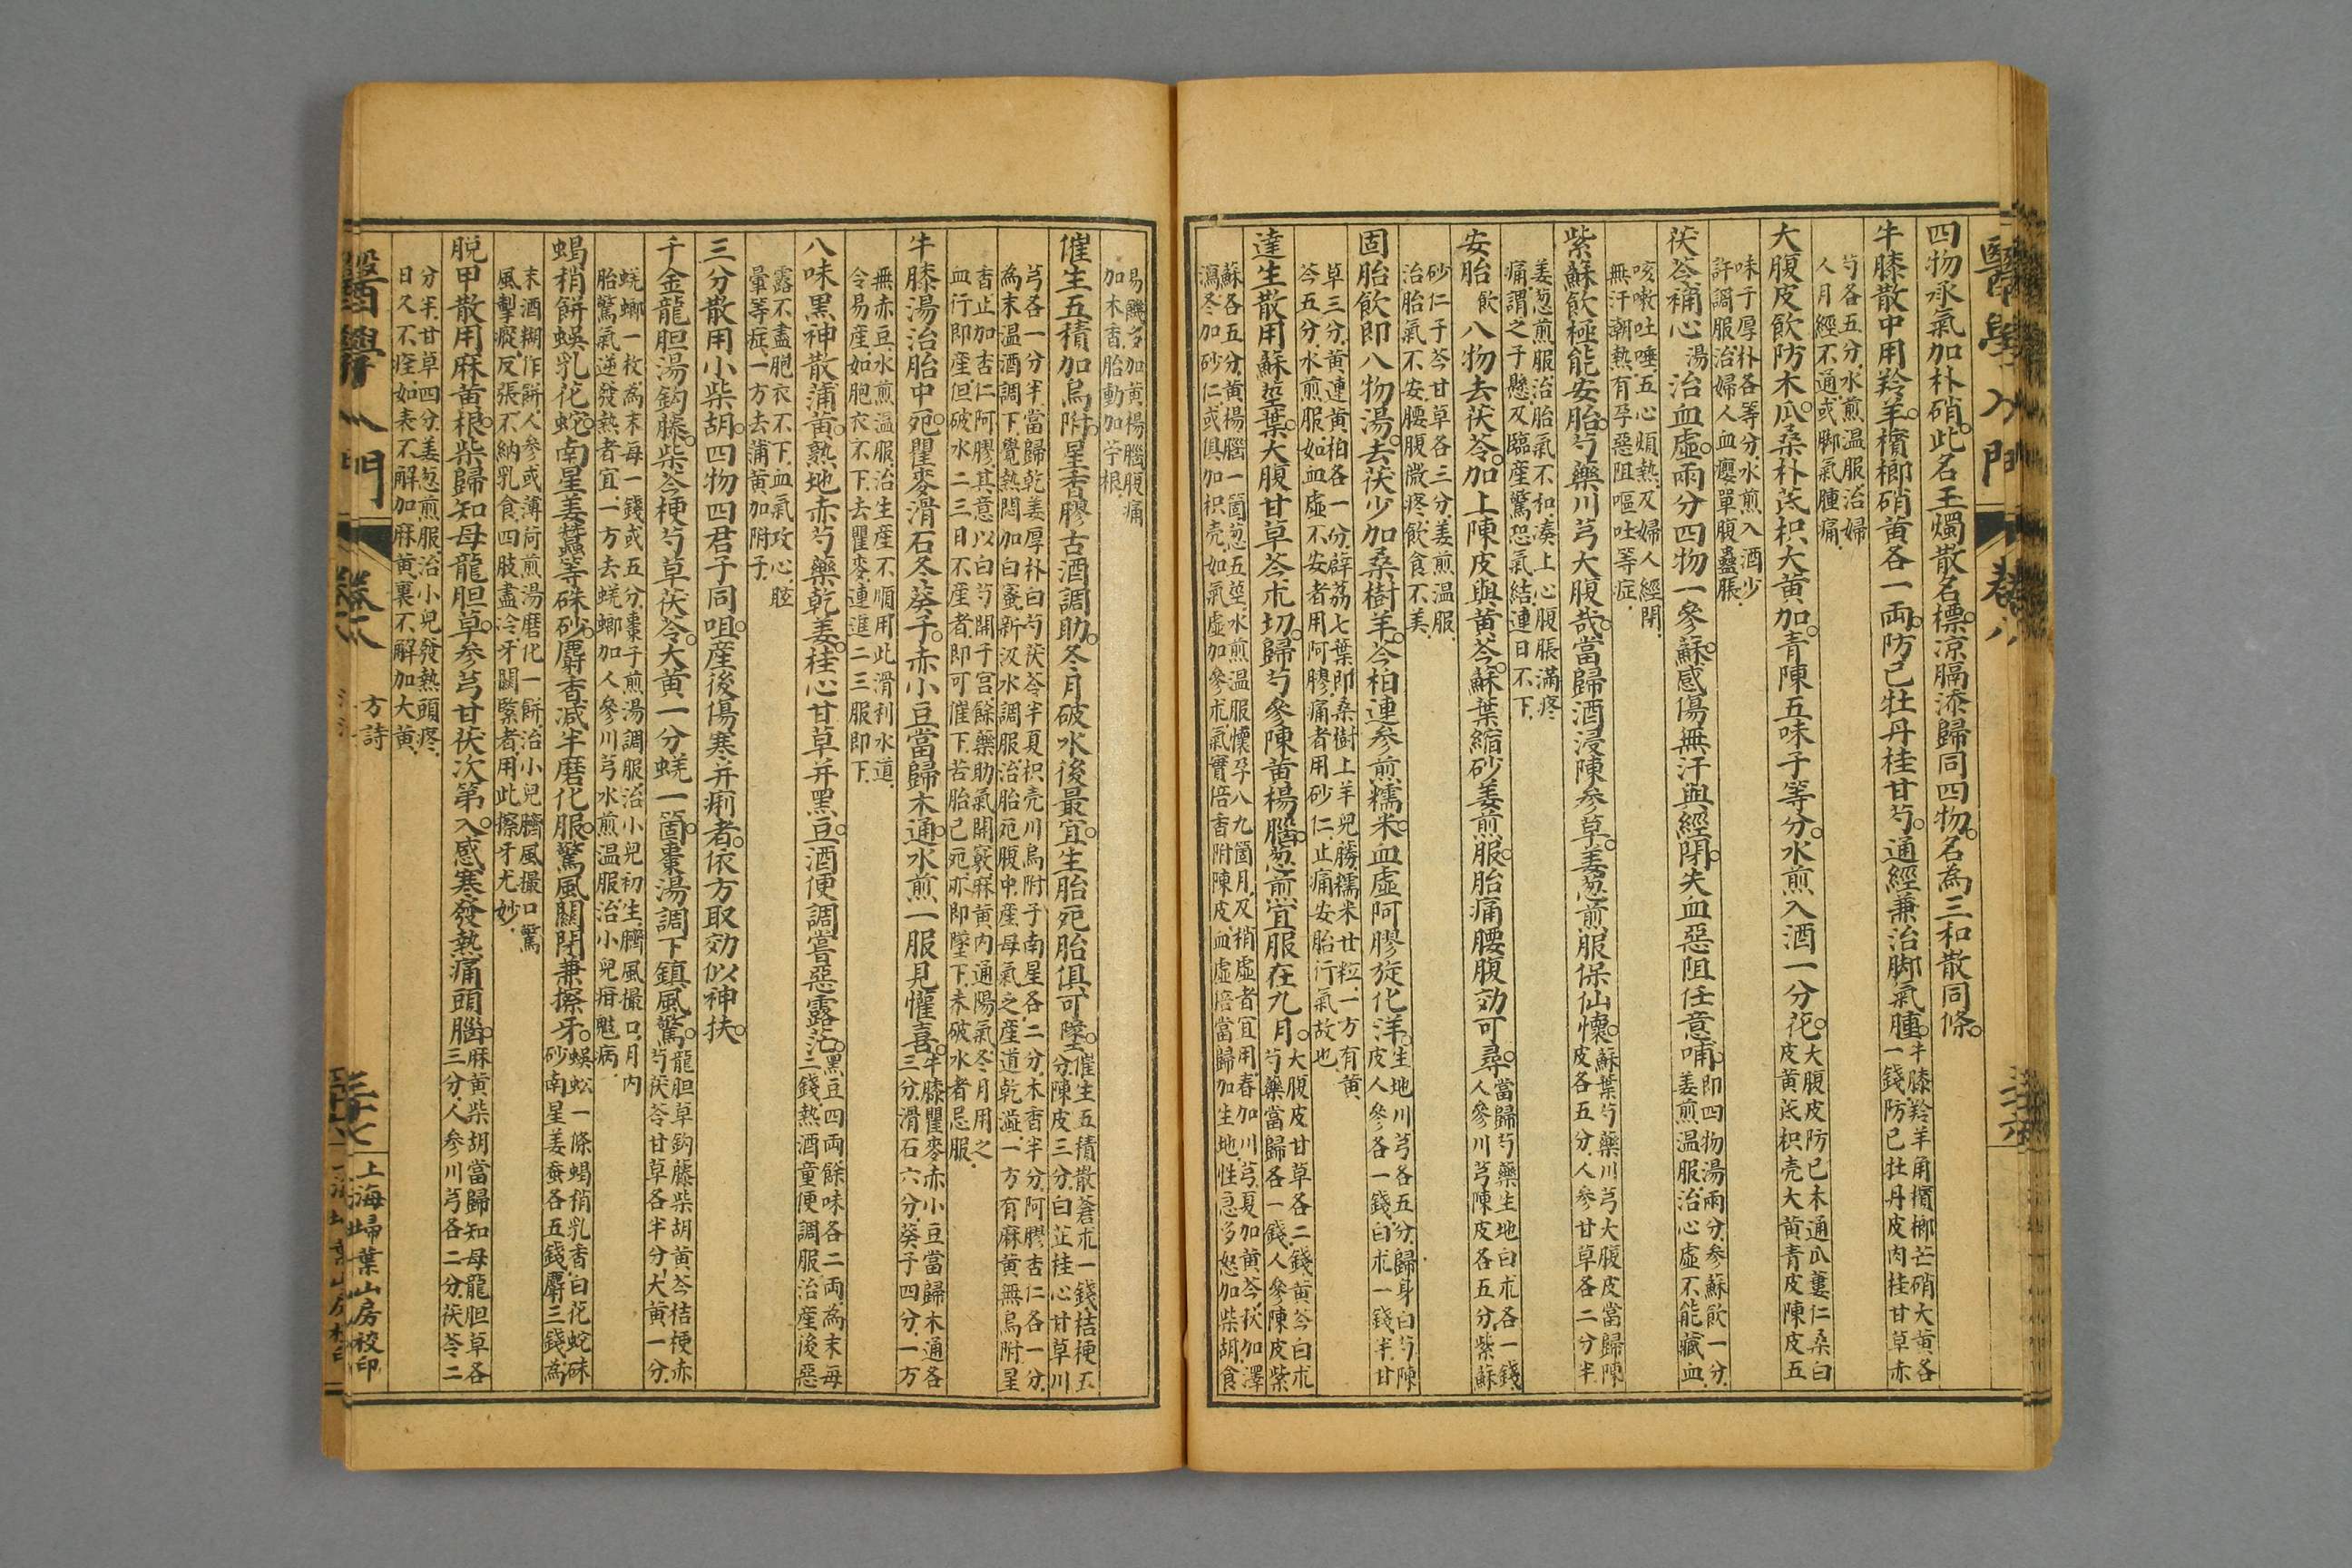 醫學入門
卷八
四物承氣加朴硝。此名玉燭散名標。涼膈添歸同四物。名為三和散同條。
牛膝散中用羚羊。檳榔硝黃各一兩。防已牡丹桂甘芍。通經兼治脚氣腫。
牛膝羚羊角檳榔芒硝大黃各
一錢防已牡丹皮肉桂甘草赤
芍各五分水煎温服治婦
人月經不通或脚氣腫痛
大腹皮飲防木瓜。桑朴芪枳大黃加。青陳五味子等分。水煎入酒一分花。
大腹皮防已木通瓜蔞仁桑白
皮黃芪枳壳大黃青皮陳皮五
味子厚朴各等分水煎入酒少
許調服治婦人血癭單腹蠱脹
茯苓補心湯治血虛。兩分四物一參蘇。感傷無汗與經閉。失血惡阻任意哺。
即四物湯兩分參蘇飲一分
姜煎温服治心虛不能藏血
咳嗽吐唾五心煩熱及婦人經閉
無汗潮熱有孕惡阻嘔吐等症
紫蘇飲極能安胎。芍藥川芎大腹哉。當歸酒浸陳參草。姜葱煎服保仙懷。
蘇葉芍藥川芎大腹皮當歸陳
皮各五分人參甘草各二分半
姜葱煎服治胎氣不和湊上心腹脹滿疼
痛謂之子懸及臨產驚恐氣結連日不下
安胎飲八物去茯苓。加上陳皮與黃芩。蘇葉縮砂姜煎服。胎痛腰腹効可尋。
當歸芍藥生地白朮各一錢
人參川芎陳皮各五分紫蘇
砂仁子芩甘草各三分姜煎温服
治胎氣不安腰腹微疼飲食不美
固胎飲即八物湯。去茯少加桑樹羊。芩柏連參煎糯米。血虛阿膠旋化洋。
生地川芎各五分歸身白芍陳
皮人參各一錢白朮一錢半甘
草三分黃連黃柏各一分辟荔七葉即桑樹上羊兒勝糯米廿粒一方有黃
芩五分水煎服如血虛不安者用阿膠痛者用砂仁止痛安胎行氣故也
達生散用蘇莖葉。大腹甘草芩朮切。歸芍參陳黃楊腦。葱煎宜服在九月。
大腹皮甘草各二錢黃芩白朮
芍藥當歸各一錢人參陳皮紫
蘇各五分黃楊腦一箇葱五莖水煎温服懷孕八九箇月及稍虛者宜用春加川芎夏加黃芩秋加澤
瀉冬加砂仁或俱加枳壳如氣虛加參朮氣實倍香附陳皮血虛倍當歸加生地性急多怒加柴胡食
易饑多加黃楊腦腹痛
加木香胎動加苧根
催生五積加烏附。星杏膠古酒調助。冬月破水後最宜。生胎死胎俱可墜。
催生五積散蒼朮一錢桔梗五
分陳皮三分白芷桂心甘草川
芎各一分半當歸乾姜厚朴白芍茯苓半夏枳壳川烏附子南星各二分木香半分阿膠杏仁各一分
為末温酒調下覺熱悶加白蜜新汲水調服治胎死腹中產母氣乏產道乾澁一方有麻黃無烏附星
香止加杏仁阿膠其意以白芍開子宫餘藥助氣開竅麻黃内通陽氣冬月用之
血行即產但破水二三日不產者即可催下苦胎已死亦即墜下未破水者忌服
牛膝湯治胎中死。瞿麥滑石冬葵子。赤小豆當歸木通。水煎一服見懽喜。
牛膝瞿麥赤小豆當歸木通各
三分滑石六分葵子四分一方
無赤豆水煎温服治生產不順用此滑利水道
令易產如胞衣不下去瞿麥連進二三服即下
八味黑神散蒲黃。熟地赤芍藥乾姜。桂心甘草并黑豆。酒便調嘗惡露茫。
黑豆四兩餘味各二兩為末每
二錢熱酒童便調服治產後惡
露不盡胞衣不下血氣攻心眩
暈等症一方去蒲黃加附子
三分散用小柴胡。四物四君子同咀。產後傷寒并痢者。依方取効似神扶。
千金龍胆湯鈎藤。柴芩梗芍草茯苓。大黃一分蜣一箇。棗湯調下鎮風驚。
龍胆草鈎藤柴胡黃芩桔梗赤
芍茯苓甘草各半分大黃一分
蜣螂一枚為末每一錢或五分棗子煎湯調服治小兒初生臍風撮口月内
胎驚氣逆發熱者宜一方去蜣螂加人參川芎水煎温服治小兒疳鬾病
蝎稍餅蜈乳花蛇。南星姜蠶等硃砂。麝香减半磨化服。驚風關閉兼擦牙。
蜈蚣一條蝎稍乳香白花蛇硃
砂南星姜蚕各五錢麝三錢為
末酒糊作餅人參或薄荷煎湯磨化一餅治小兒臍風撮口驚
風掣瘲反張不納乳食四肢盡冷牙關緊者用此擦牙尤妙
脱甲散用麻黃根。柴歸知母龍胆草。參芎甘茯次第入。感寒發熱痛頭腦。
麻黃柴胡當歸知母龍胆草各
三分人參川芎各二分茯苓二
分半甘草四分姜葱煎服治小兒發熱頭疼
日久不痊如表不解加麻黃裏不解加大黃
醫學入門
卷八
方詩
上海埽葉山房校印